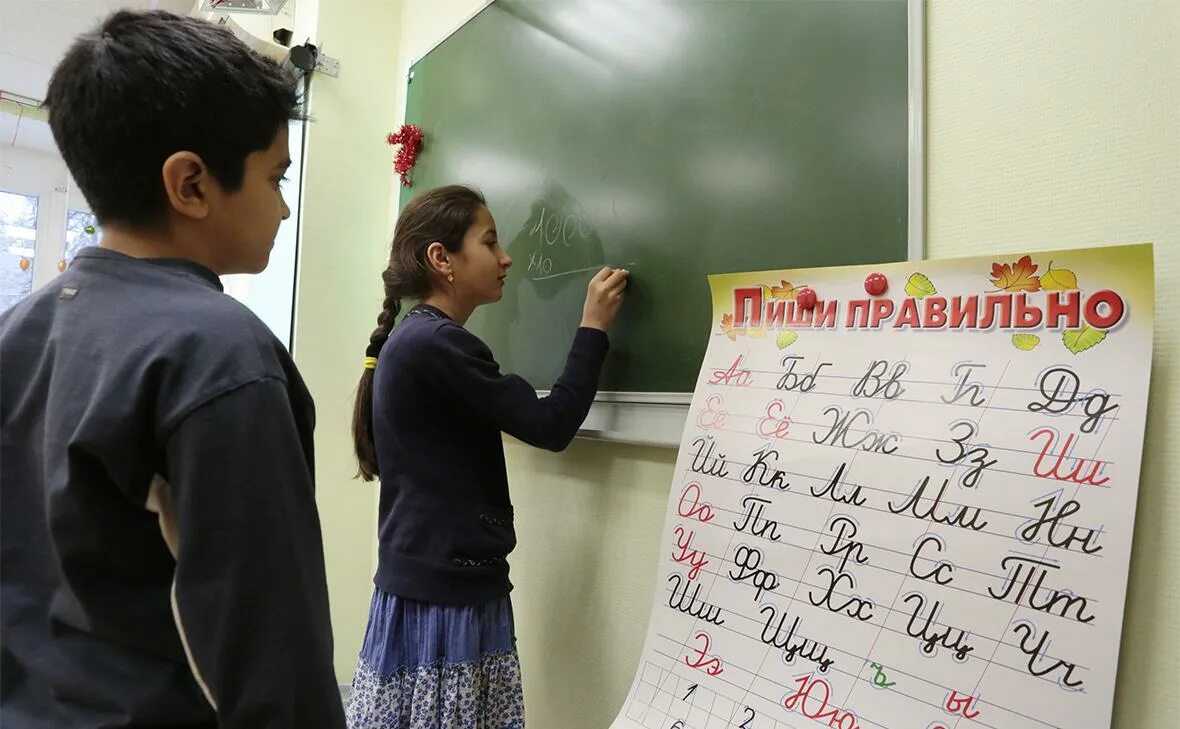 1000
ПИШИ ПРАВИЛЬНО
Аа Бб Вв Гг Дд
Ее Ёё Жж Зз Ии
Йй Кк Лл Мм Нн
Оо Пп Рр Сс Тт
Уу Фф Хх Цц Чч
Шш Щщ ъ ы
Ээ Юю
1 2
6